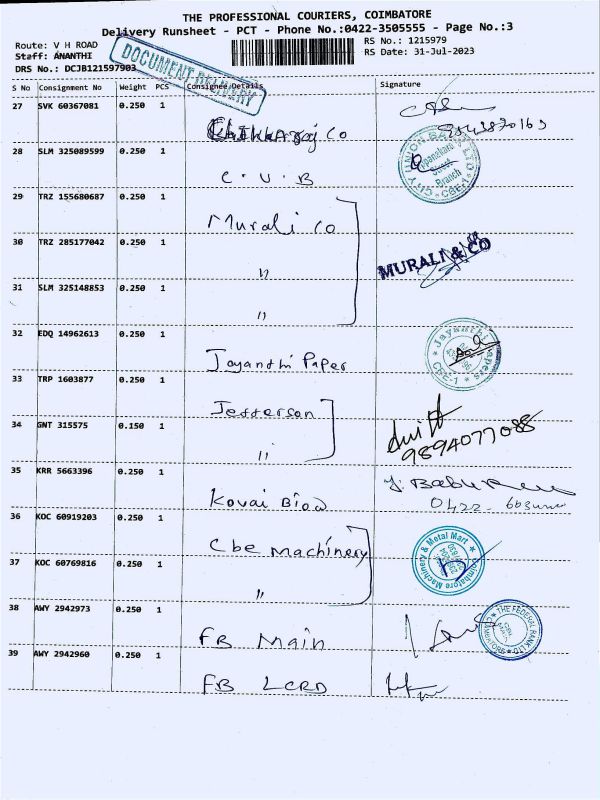 THE PROFESSIONAL COURIERS, COIMBATORE
Delivery Runsheet - PCT - Phone No.:0422-3505555 - Page No.:3
Route: V H ROAD
RS No.: 1215979
Staff: ANANTHI
RS Date: 31-Jul-2023
DRS No.: DCJB121597903
DOCUMENT DELIVERY
S No Consignment No Weight PCS Consignee Details Signature
27 SVK 60367081 0.250 1
Co
28 SLM 325089599 0.250 1
C.U.B
CITY UNION BANK LTD
Branch
CBE-1
29 TRZ 155680687 0.250 1
Murali Co
30 TRZ 285177042 0.250 1
"
MURALI & CO
31 SLM 325148853 0.250 1
"
32 EDQ 14962613 0.250 1
Jayanthi Paper
Jayanthi Papers
CBE-1
33 TRP 1603877 0.250 1
Jefferson
34 GNT 315575 0.150 1
"
9894077088
35 KRR 5663396 0.250 1
Kovai Bioo
J. Babu
0422-
36 KOC 60919203 0.250 1
Cbe Machinery
Coimbatore Machinery & Metal Mart
37 KOC 60769816 0.250 1
"
38 AWY 2942973 0.250 1
FB Main
THE FEDERAL BANK LTD
39 AWY 2942960 0.250 1
FB LCRD